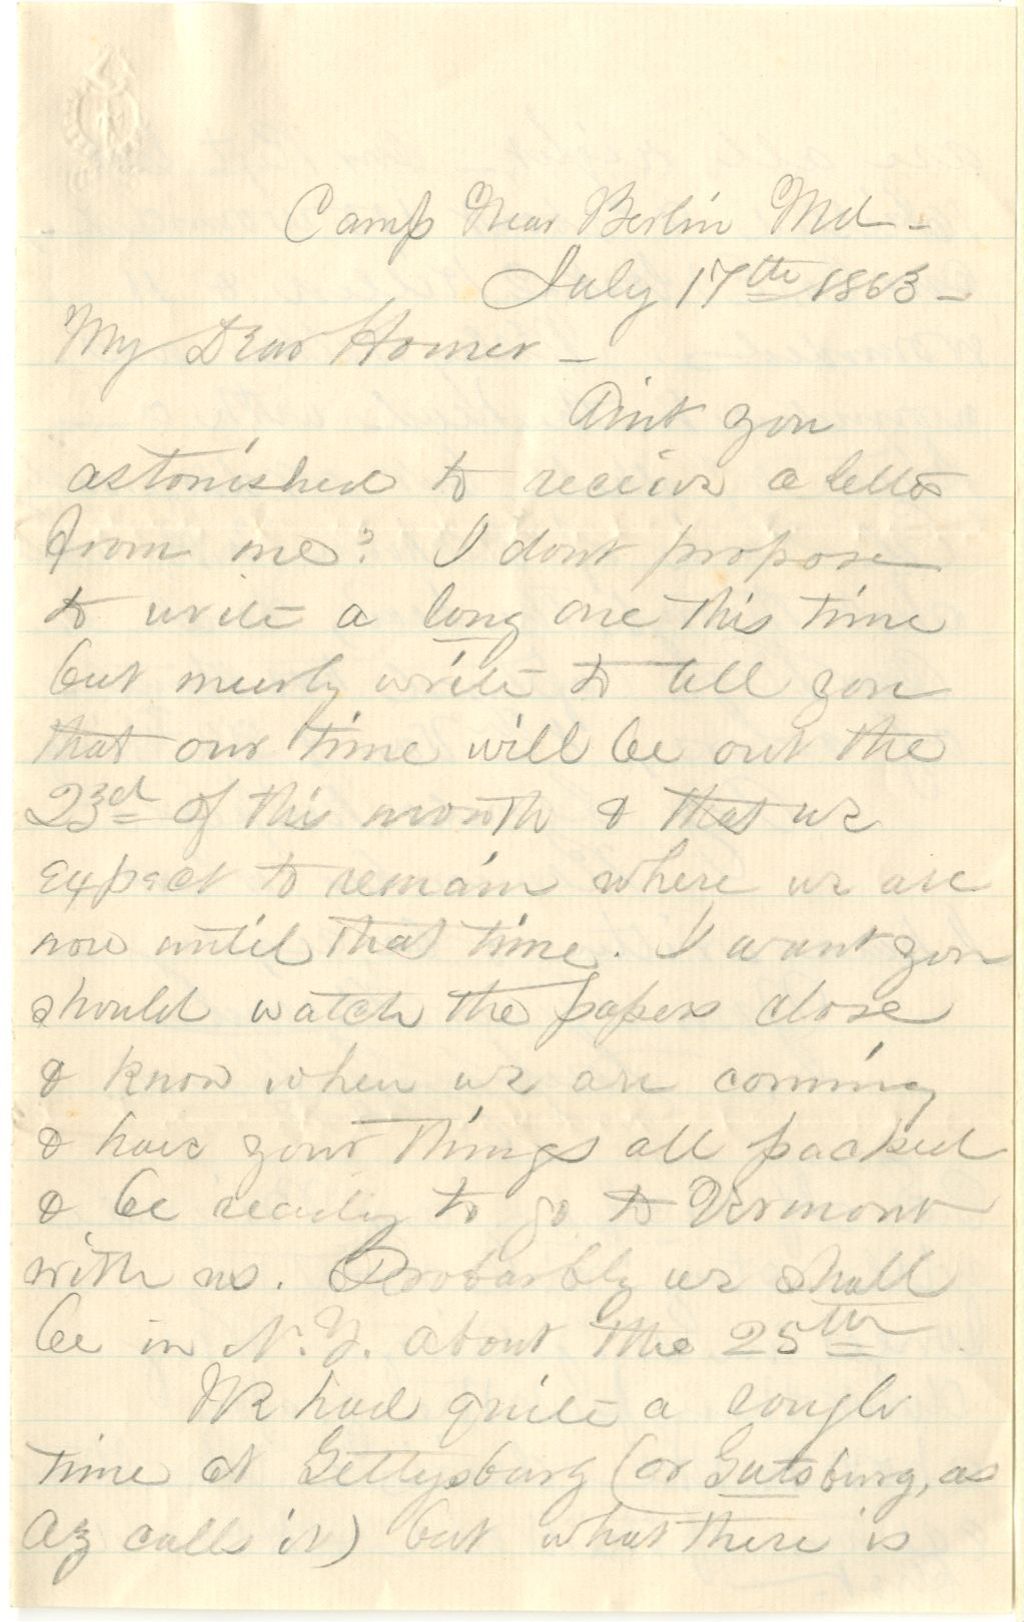 Camp Near Berlin Md -
July 17th 1863 -
My Dear Homer -
Aint you
astonished to receive a letter
from me? I dont propose
to write a long one this time
but merely write to tell you
that our time will be out the
23d of this month & that we
expect to remain where we are
now until that time. I want you
should watch the papers close
& know when we are coming
& have your things all packed
& be ready to go to Vermont
with us. Probarbly we shall
be in N.Y. about the 25th
We had quite a rough
time at Gettysburg (or Gutsburg, as
Az calls it) but what there is